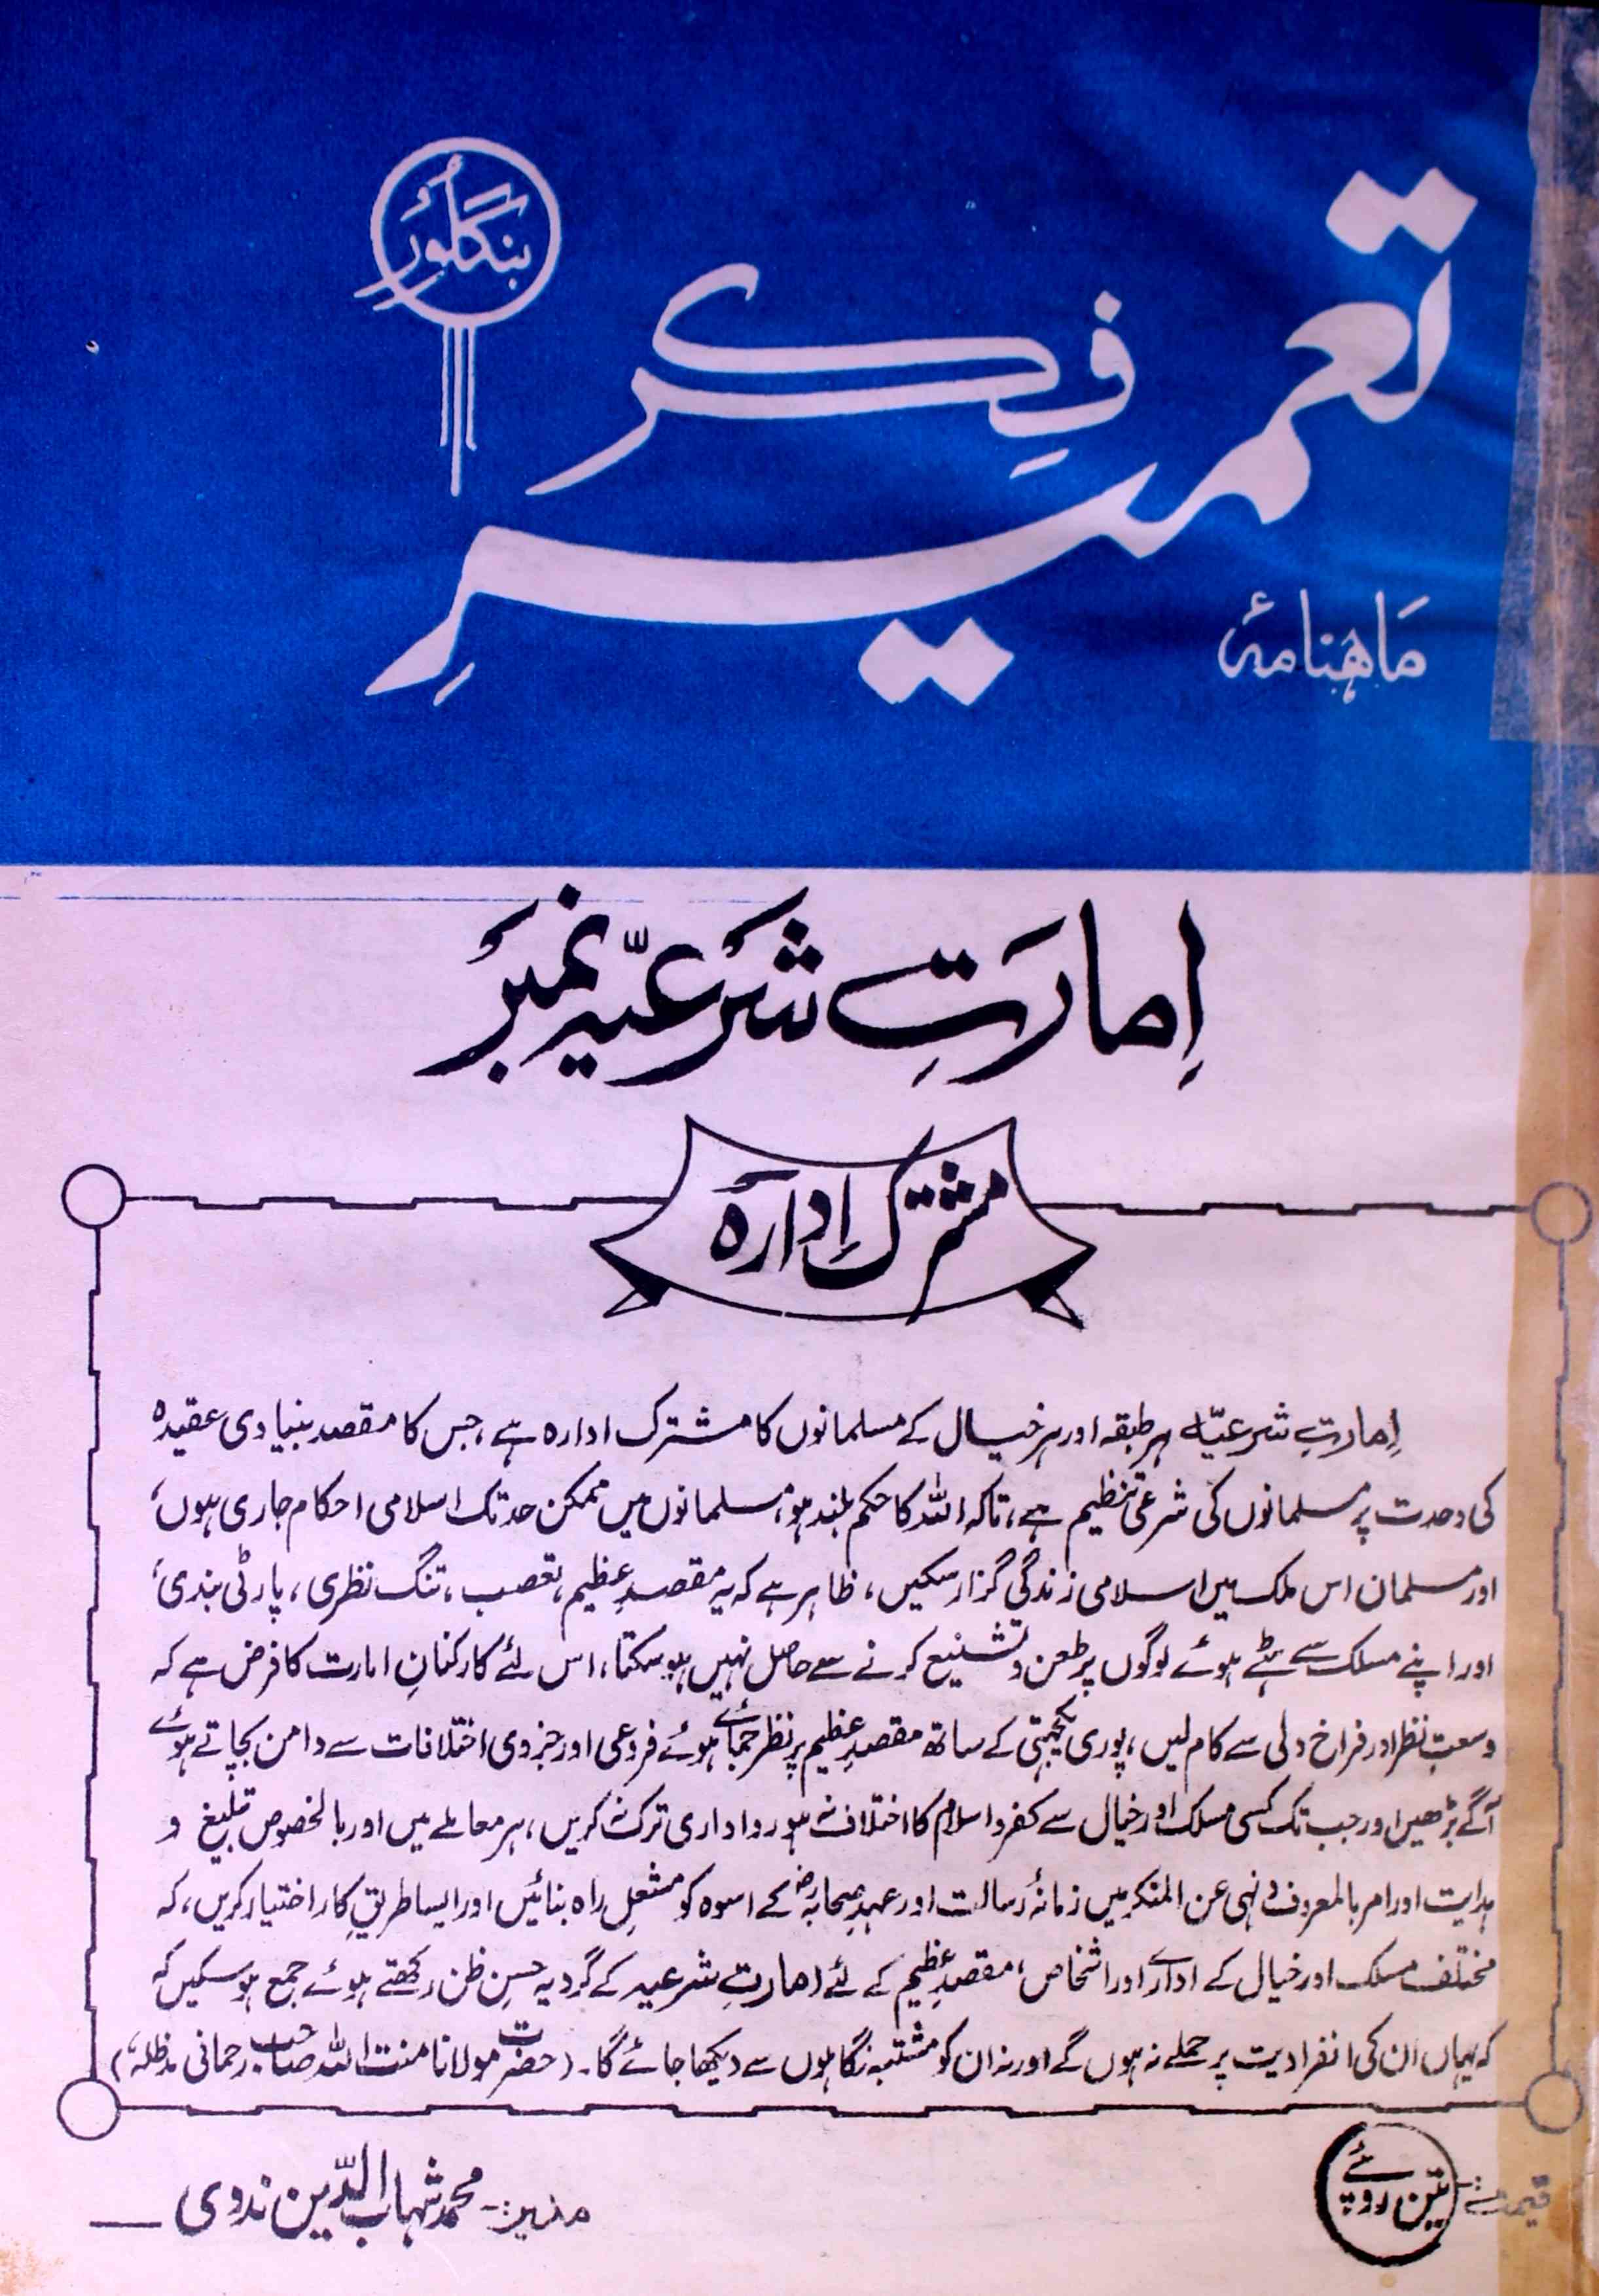 ماہنامۂ
تعمیرِ فِکر
بنگلُور
اِمارَتِ شَرعیّہ نمبَر
مشترک اِدارَہ
اِمارتِ شرعیّہ ہر طبقہ اور ہر خیال کے مسلمانوں کا مشترک ادارہ ہے، جس کا مقصد بنیادی عقیدہ
کی وحدت پر مسلمانوں کی شرعی تنظیم ہے، تاکہ اللہ کا حکم بلند ہو، مسلمانوں میں ممکن حد تک اسلامی احکام جاری ہوں،
اور مسلمان اس ملک میں اسلامی زندگی گزار سکیں، ظاہر ہے کہ یہ مقصدِ عظیم، تعصب، تنگ نظری، پارٹی بندی،
اور اپنے مسلک سے ہٹے ہوئے لوگوں پر طعن و تشنیع کرنے سے حاصل نہیں ہو سکتا، اس لئے کارکنانِ امارت کا فرض ہے کہ
وسعتِ نظر اور فراخ دلی سے کام لیں، پوری یکجہتی کے ساتھ مقصدِ عظیم پر نظر جمائے ہوئے فروعی اور جزوی اختلافات سے دامن بچاتے ہوئے
آگے بڑھیں اور جب تک کسی مسلک اور خیال سے کفر و اسلام کا اختلاف نہ ہو رواداری ترک نہ کریں، ہر معاملے میں اور بالخصوص تبلیغ و
ہدایت اور امر بالمعروف و نہی عن المنکر میں زمانۂ رسالت اور عہدِ صحابہؓ کے اسوہ کو مشعلِ راہ بنائیں اور ایسا طریقِ کار اختیار کریں، کہ
مختلف مسلک اور خیال کے ادارے اور اشخاص، مقصدِ عظیم کے لئے امارتِ شرعیہ کے گرد یہ حسنِ ظن رکھتے ہوئے جمع ہو سکیں کہ
کہ یہاں ان کی انفرادیت پر حملے نہ ہوں گے اور نہ ان کو مشتبہ نگاہوں سے دیکھا جائے گا۔ (حضرت مولانا منت اللہ صاحب رحمانی مدظلہٗ)
قیمت:- تین روپئے
مدیر:- محمد شہاب الدّین ندوی